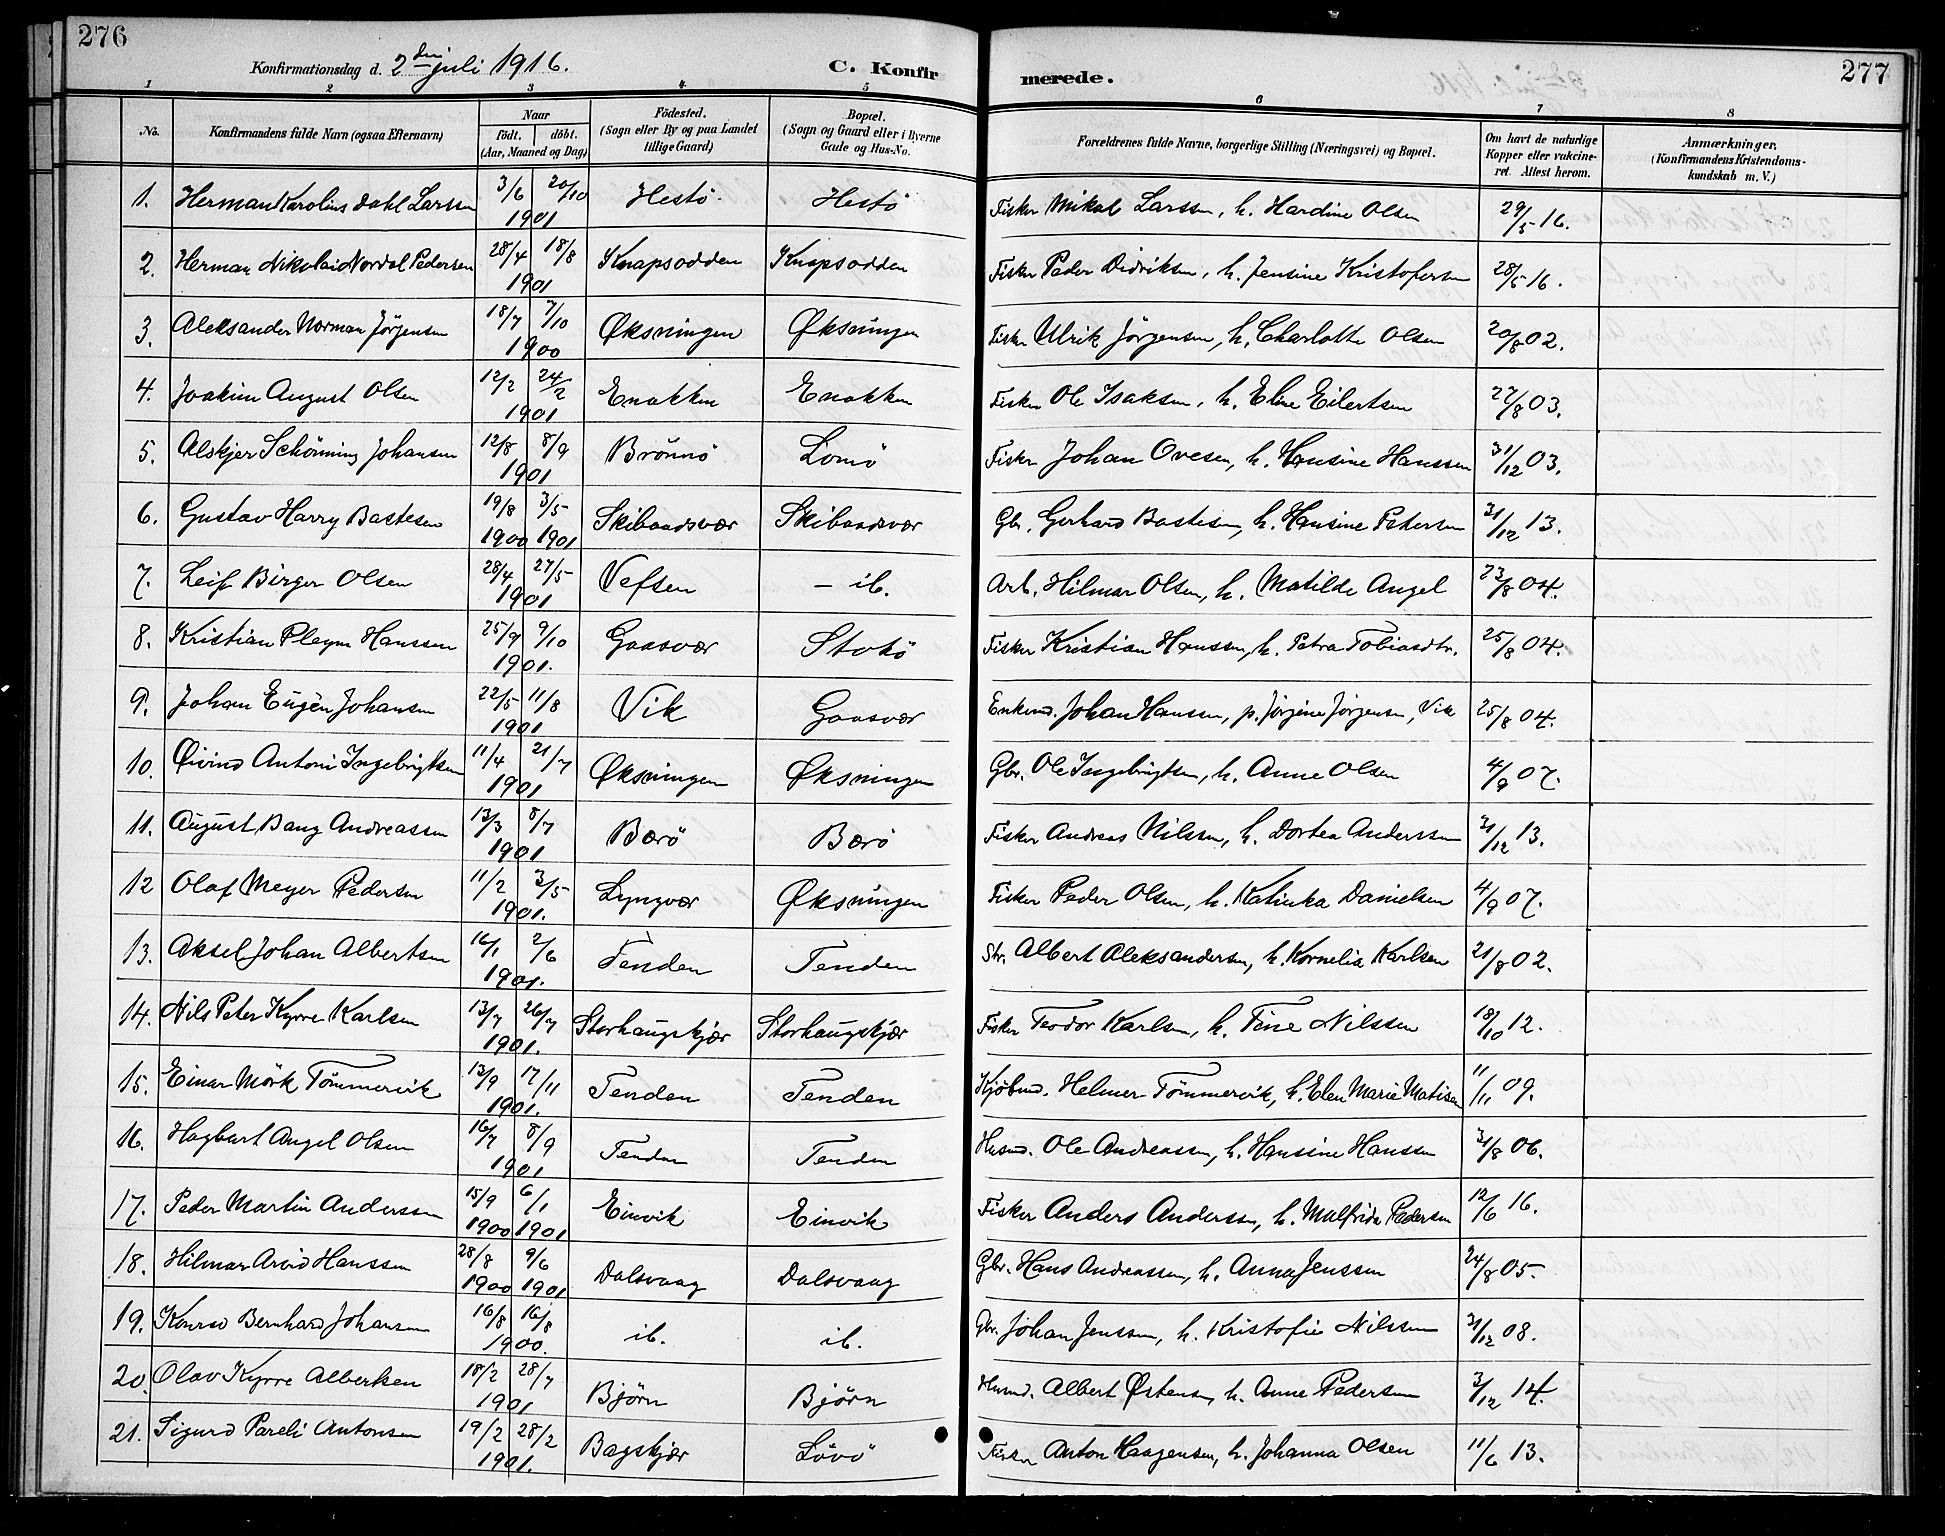 276
Konfirmationsdag d. 2den juli 1916.
C. Konfirmerede.
277
1 2 3 4 5 6 7 8
No. Konfirmandens fulde Navn (ogsaa Efternavn) Naar født. døbt. (Aar, Maaned og Dag) Fødested. (Sogn eller By og paa Landet tillige Gaard) Bopæl. (Sogn og Gaard eller i Byerne Gade og Hus-No. Forældrenes fulde Navne, borgerlige Stilling (Næringsvei) og Bopæl. Om havt de naturlige Kopper eller vakcineret. Attest herom. Anmærkninger. (Konfirmandens Kristendomskundskab m. V.)
1. Herman Karolius Dahl Larssen 3/6 20/10 1901 Hestö. Hestö Fisker Mikal Larssen, h. Hardine Olsen 29/5 16.
2. Herman Nikolai Nordal Pedersen 28/4 18/8 1901 Knapsodden Knapsodden Fisker Peder Didriksen, h. Jensine Kristofersen 28/5 16.
3. Aleksander Norman Jörgensen 18/7 7/10 1900 Øksningen Øksningen Fisker Ulrik Jörgensen, h. Charlotte Olsen 20/8 02.
4. Joakim August Olsen 12/2 24/2 1901 Enokken Enokken Fisker Ole Isaksen, h. Eline Eilertsen 27/8 03.
5. Alskjer Schönning Johansen 12/8 8/9 1901 Brönnö Lomö Fisker Johan Ovesen, h. Hansine Hanssen 31/12 03.
6. Gustav Harry Bastesen 19/8 3/5 1900 1901 Skibaadsvær Skibaadsvær Gbr. Gerhard Bastesen, h. Hansine Petersen 31/12 13.
7. Leif Birger Olsen 28/4 27/5 1901 Vefsen – ib. Arb. Hilmar Olsen, h. Matilde Angel 23/8 04.
8. Kristian Pleym Hanssen 25/9 9/10 1901. Gaasvær Stokö Fisker Kristian Hanssen, h. Petra Tobiasdtr. 25/8 04.
9. Johan Eugèn Johansen 22/5 11/8 1901 Vik Gaasvær Enkemd. Johan Hanssen, p. Jörgine Jörgensen, Vik 25/8 04.
10. Øivind Antoni Ingebrigtsen 11/4 21/7 1901 Øksningen Øksningen Gbr. Ole Ingebrigtsen, h. Anne Olsen 4/9 07.
11. August Bang Andreassen 13/3 8/7 1901 Bærö Bærö Fisker Andreas Nilssen, h. Dortea Anderssen 31/12 13.
12 Olaf Meyer Pedersen 11/2 3/5 1901. Lyngvær Øksningen Fisker Peder Olsen, h. Katinka Danielsen 4/9 07.
13. Aksel Johan Albertsen 16/1 2/6 1901. Tenden Tenden Str. Albert Aleksandersen, h. Kornelia Karlsen 21/8 02.
14. Nils Peter Kyrre Karlsen 13/7 26/7 1901. Storhaugskjær Storhaugskjær Fisker Teodor Karlsen, h. Tine Nilssen 18/10 12.
15. Einar Mörk Tömmervik 13/9 17/11 1901. Tenden Tenden Kjöbmd. Helmer Tömmervik, h. Elen Marie Matisen 11/11 09.
16. Hagbart Angel Olsen 16/7 8/9 1901 Tenden Tenden Husmd. Ole Andreassen, h. Hansine Hanssen 31/8 06.
17. Peder Martin Anderssen 15/9 6/1 1900 1901 Einvik Einvik Fisker Anders Anderssen, h. Malfrida Pedersen 12/6 16.
18. Hilmar Arvid Hanssen 28/8 9/6 1900 1901 Dalsvaag Dalsvaag Gbr. Hans Andreassen, h. Anna Jenssen 24/8 05.
19. Konrad Bernhard Johansen 16/8 16/8 1900. ib. ib. Gbr. Johan Jenssen, h. Kristofie Nilssen 31/12 08.
20. Olav Kyrre Albertsen 18/2 28/7 1901 Bjørn Bjørn Husmd. Albert Østensen, h. Anne Pedersen 3/12 14.
21. Sigurd Pareli Antonsen 19/2 28/2 1901. Bagskjær Lövö Fisker Anton Haagensen, h. Johanna Olsen 11/6 13.